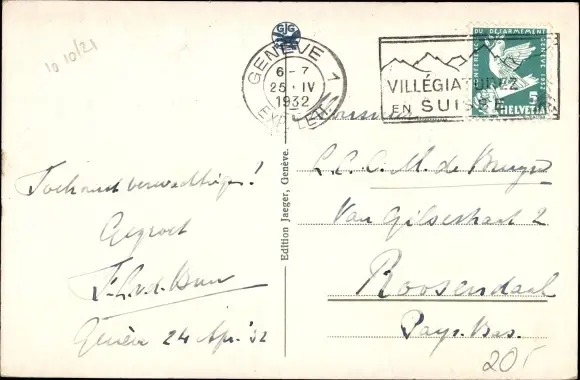 10 10/21
GG
GENÈVE 1
6-7
25.IV
1932
EXP. LETT.
VILLÉGIATUREZ
EN SUISSE
CONFÉRENCE DU DÉSARMEMENT GENÈVE 1932
5
HELVETIA
Toch niet
Gegroet
Genève 24 Apr. '32
Edition Jaeger, Genève.
M. de Bruyn
Van Gilsestraat 2
Roosendaal
Pays-Bas.
20